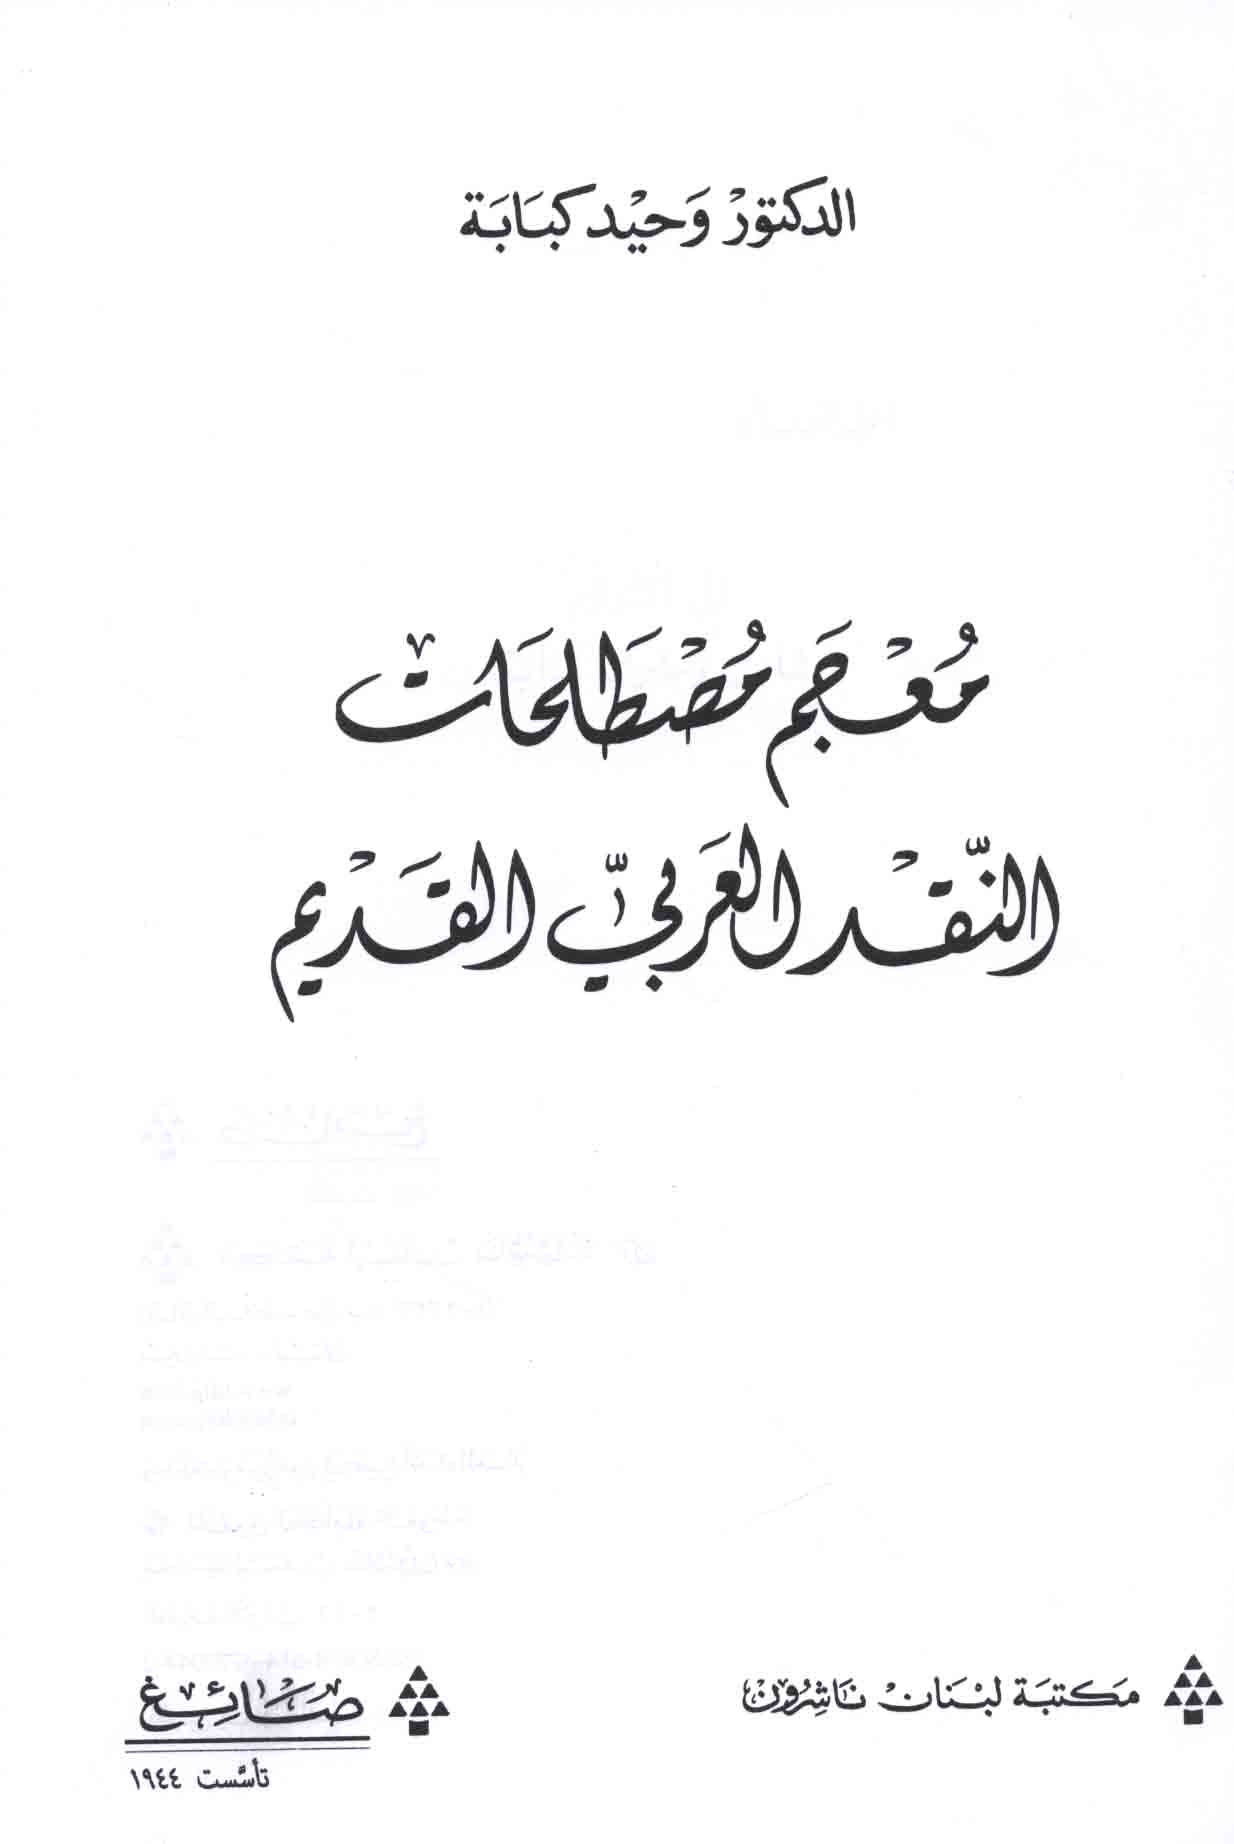 الدكتورْ وَحيْد كبَابَة
مُعْجَم مُصْطَلحَات
النّقْد العَرَبيِّ القَدْيم
مَكتبَة لبْنَانْ نَاشِرُونْ
صَائِغ
تأسَّست ١٩٤٤